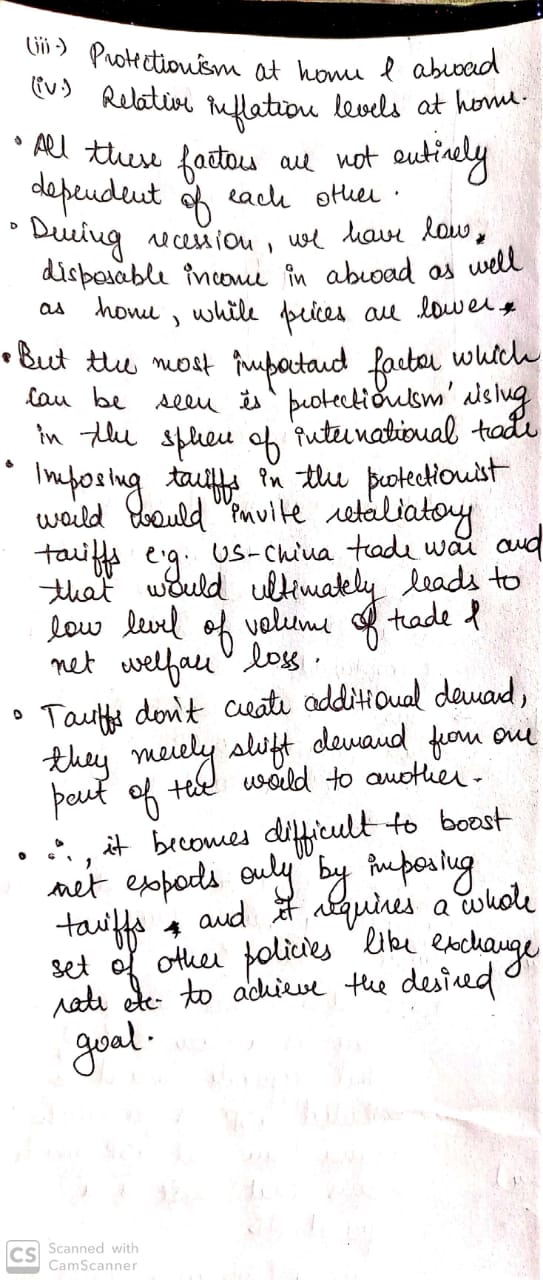 (iii-) Protectionism at home & abroad
(iv-) Relative inflation levels at home.
• All these factors are not entirely
dependent of each other.
• During recession, we have low
disposable income in abroad as well
as home, while prices are lower
• But the most importand factor which
can be seen is 'protectionism' rising
in the sphere of international trade
• Imposing tariffs in the protectionist
world would invite retaliatory
tariffs e.g. US-China trade war and
that would ultimately leads to
low level of volume of trade &
net welfare loss.
• Tariffs don't create additional demand,
they merely shift demand from one
part of the world to another.
• ∴, it becomes difficult to boost
net exports only by imposing
tariffs, and it requires a whole
set of other policies like exchange
rate etc. to achieve the desired
goal.
CS Scanned with
CamScanner